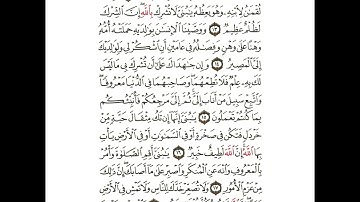 لُقْمَٰنُ لِٱبْنِهِۦ وَهُوَ يَعِظُهُۥ يَٰبُنَىَّ لَا تُشْرِكْ بِٱللَّهِ إِنَّ ٱلشِّرْكَ
لَظُلْمٌ عَظِيمٌ ١٣ وَوَصَّيْنَا ٱلْإِنسَٰنَ بِوَٰلِدَيْهِ حَمَلَتْهُ أُمُّهُۥ
وَهْنًا عَلَىٰ وَهْنٍ وَفِصَٰلُهُۥ فِى عَامَيْنِ أَنِ ٱشْكُرْ لِى وَلِوَٰلِدَيْكَ
إِلَىَّ ٱلْمَصِيرُ ١٤ وَإِن جَٰهَدَاكَ عَلَىٰٓ أَن تُشْرِكَ بِى مَا لَيْسَ
لَكَ بِهِۦ عِلْمٌ فَلَا تُطِعْهُمَا وَصَاحِبْهُمَا فِى ٱلدُّنْيَا مَعْرُوفًا
وَٱتَّبِعْ سَبِيلَ مَنْ أَنَابَ إِلَىَّ ثُمَّ إِلَىَّ مَرْجِعُكُمْ فَأُنَبِّئُكُم
بِمَا كُنتُمْ تَعْمَلُونَ ١٥ يَٰبُنَىَّ إِنَّهَآ إِن تَكُ مِثْقَالَ حَبَّةٍ مِّنْ
خَرْدَلٍ فَتَكُن فِى صَخْرَةٍ أَوْ فِى ٱلسَّمَٰوَٰتِ أَوْ فِى ٱلْأَرْضِ يَأْتِ
بِهَا ٱللَّهُ إِنَّ ٱللَّهَ لَطِيفٌ خَبِيرٌ ١٦ يَٰبُنَىَّ أَقِمِ ٱلصَّلَوٰةَ وَأْمُرْ
بِٱلْمَعْرُوفِ وَٱنْهَ عَنِ ٱلْمُنكَرِ وَٱصْبِرْ عَلَىٰ مَآ أَصَابَكَ إِنَّ ذَٰلِكَ
مِنْ عَزْمِ ٱلْأُمُورِ ١٧ وَلَا تُصَعِّرْ خَدَّكَ لِلنَّاسِ وَلَا تَمْشِ فِى ٱلْأَرْضِ